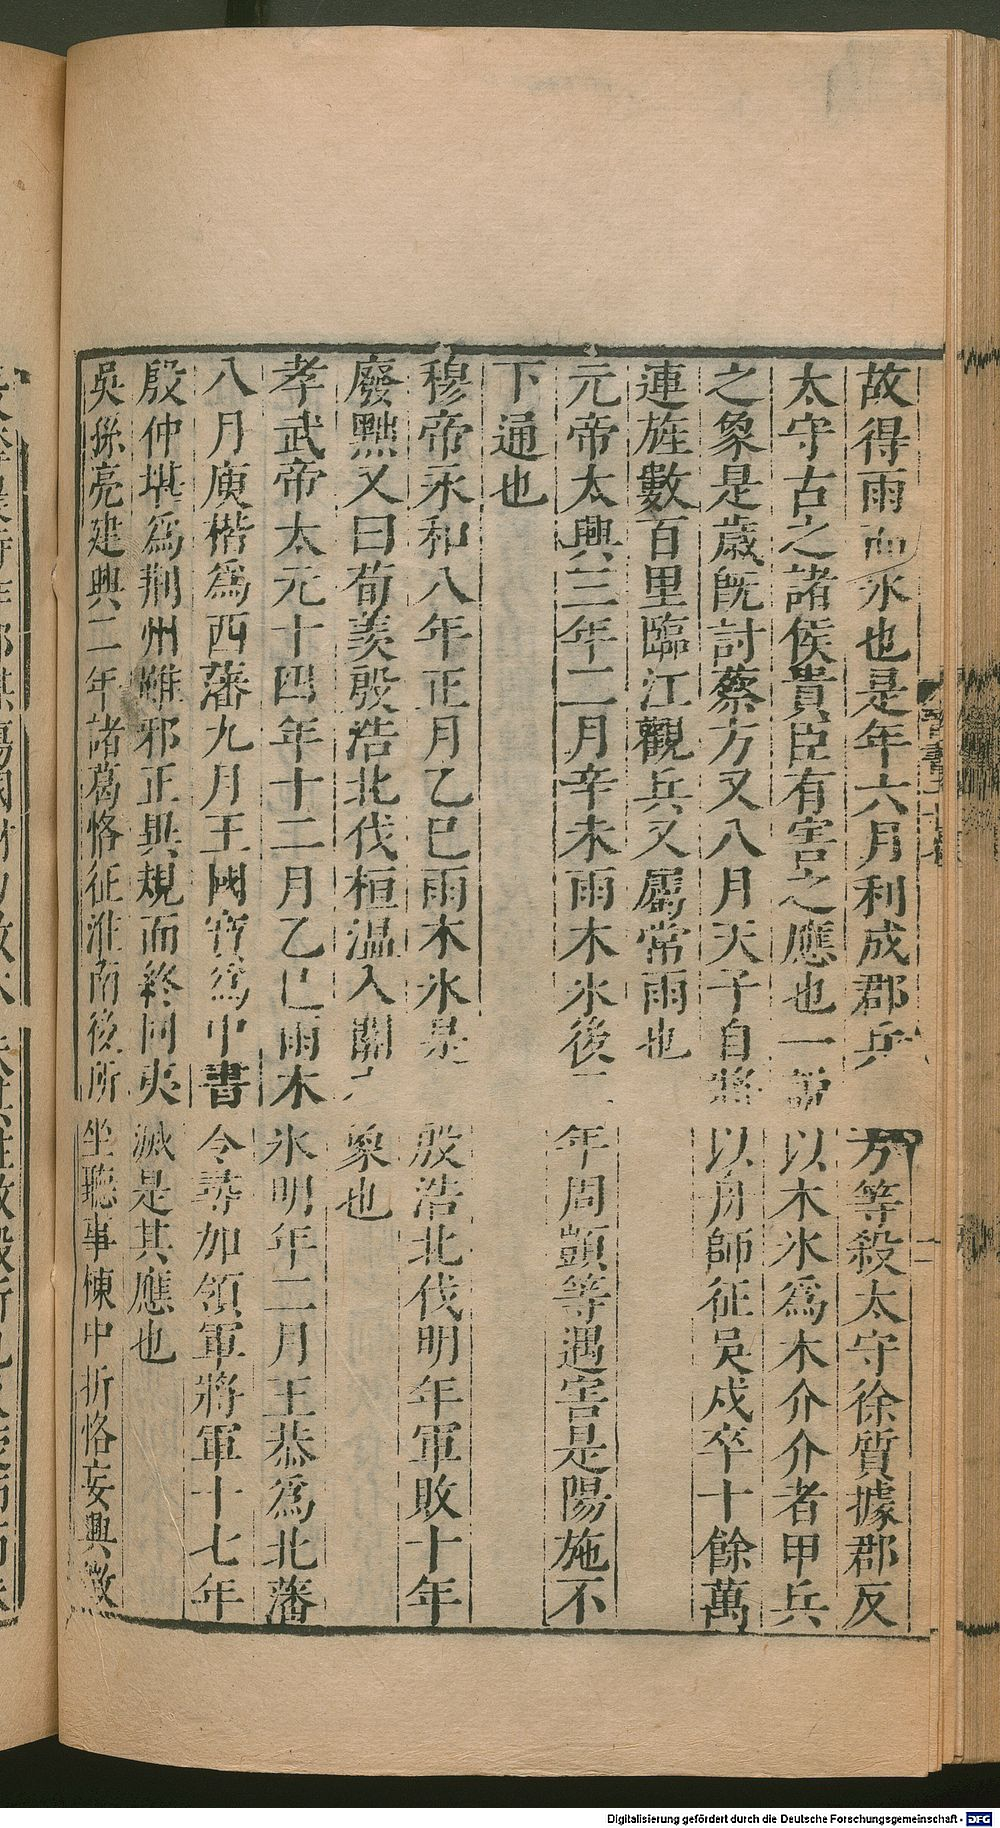 故得雨而氷也是年六月利成郡兵方等殺太守徐質據郡反
太守古之諸侯貴臣有害之應也一說以木氷爲木介介者甲兵
之象是歲旣討蔡方又八月天子自將以舟師征吳戍卒十餘萬
連旌數百里臨江觀兵又屬常雨也
元帝太興三年二月辛未雨木氷後二年周顗等遇害是陽施不
下通也
穆帝永和八年正月乙巳雨木氷是殷浩北伐明年軍敗十年
廢黜又曰荀羨殷浩北伐桓溫入關之象也
孝武帝太元十四年十二月乙巳雨木氷明年二月王恭爲北藩
八月庾楷爲西藩九月王國寶爲中書令尋加領軍將軍十七年
殷仲堪爲荆州雖邪正異規而終同夷滅是其應也
吳孫亮建興二年諸葛恪征淮南後所坐聽事棟中折恪妄興徵
晉書
Digitalisierung gefördert durch die Deutsche Forschungsgemeinschaft - DFG